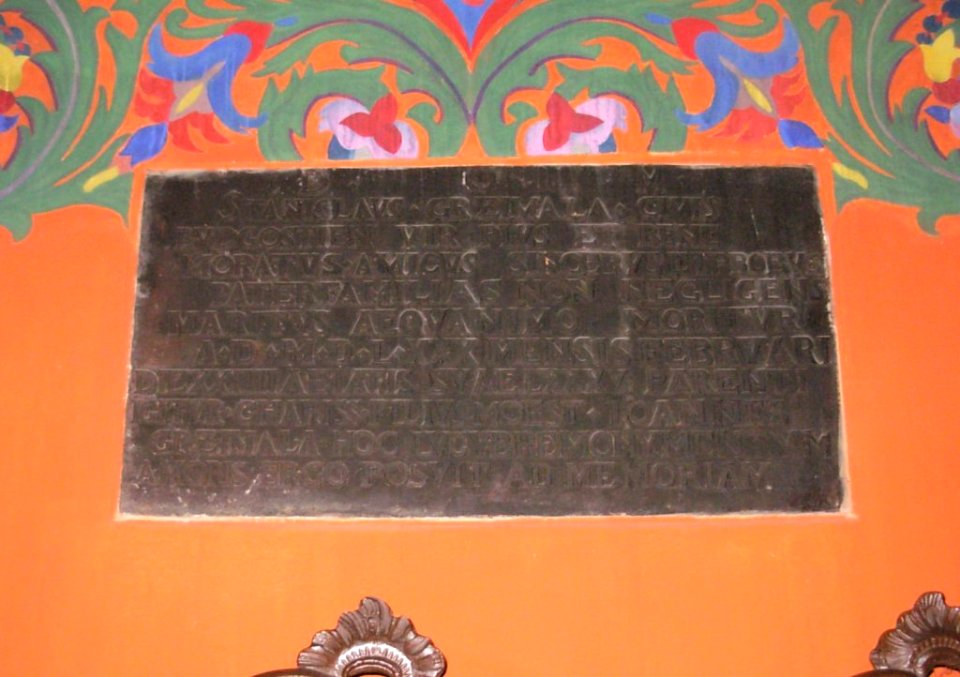 D O M
STANISLAVS GRZIMALA CIVIS
BYDGOSTIEN VIR PIVS ET BENE
MORATVS AMICVS SINCERVS ET PROBVS
PATERFAMILIAS NON NEGLIGENS
MARITVS AEQVANIMOR MORITVR
A D M D L MENSIS FEBRVARI
DIE AETATIS SVAE PARENTI
IGITVR CHARISS FILIVS MOEST IOANNES
GRZIMALA HOC MONVMENTVM
AMORIS ERGO POSVIT AD MEMORIAM